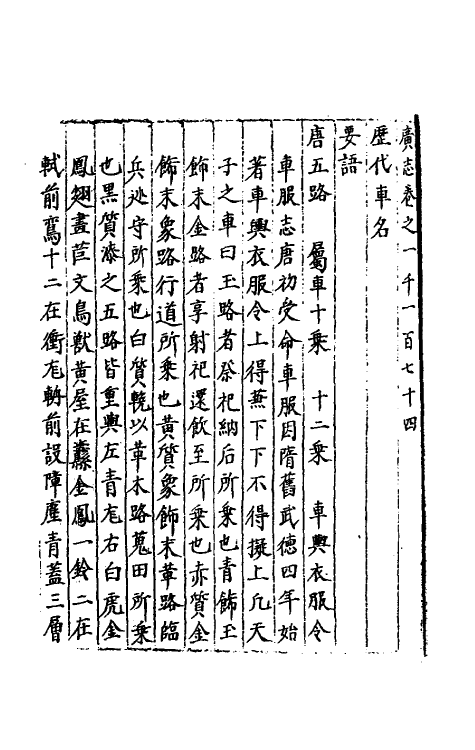 廣志卷之一千一百七十四
歷代車名
要語
唐五路　屬車十乘　十二乘　車輿衣服令
車服志唐初受命車服因隋舊武德四年始
著車輿衣服令上得兼下下不得擬上凡天
子之車曰玉路者祭祀納后所乘也青飾玉
飾末金路者享射祀還飲至所乘也赤質金
飾末象路行道所乘也黃質象飾末革路臨
兵巡守所乘也白質輓以革木路蒐田所乘
也黑質漆之五路皆重輿左青龍右白虎金
鳳翅畫苣文鳥獸黃屋在纛金鳳一鈴二在
軾前鸞十二在衡龍輈前設障塵青蓋三層